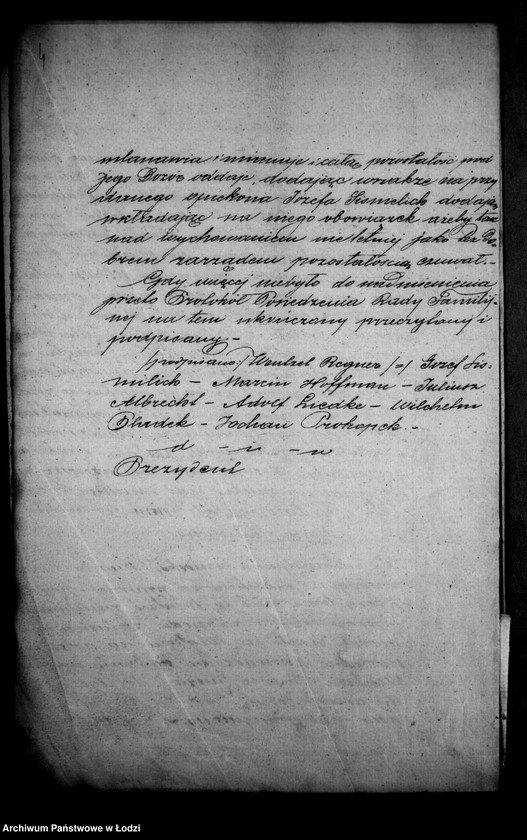 4
mianawia i mianuje i całą pozostałość pod
jego Dozór oddaje, dodając wszakże na przy
danego opiekuna Józefa Lismelich dodając
wkładając na niego obowiązek ażeby tak
nad wychowaniem nieletniej jako też do
brem zarządem pozostałością czuwał.-
Gdy więcej niebyło do nadmienienia
przeto Protokół Posiedzenia Rady Familij-
nej na tem ukończony przeczytany i
podpisany.-
/podpisano:/ Wentzel Regner /-/ Jozef Lis-
milich - Marcin Hoffman - Juliusz
Albrecht - Adolf Liedke - Wilchelm
- Jochan Prokopek.-
d - u - w
Prezydent
Archiwum Państwowe w Łodzi